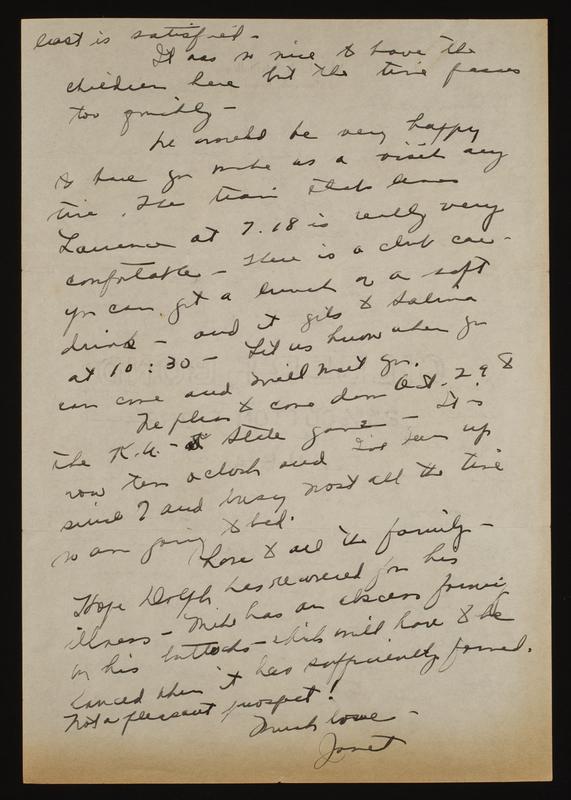 least is satisfied -
It was so nice to have the
children here but the time passes
too quickly -
We would be very happy
to have you make us a visit any
time. The train that leaves
Lawrence at 7.18 is really very
comfortable - There is a club car -
you can get a lunch or a soft
drink - and it gets to Salina
at 10:30 - Let us know when you
can come and we'll meet you.
We plan to come down Oct. 29 to
the K.U. - State game - It is
now ten o'clock and I've been up
since 7 and busy most all the time
so am going to bed.
Love to all the family -
Hope Dolph has recovered from his
illness - Mike has an abscess forming
on his buttocks - which will have to be
lanced when it has sufficiently formed.
Not a pleasant prospect!
Much love -
Janet